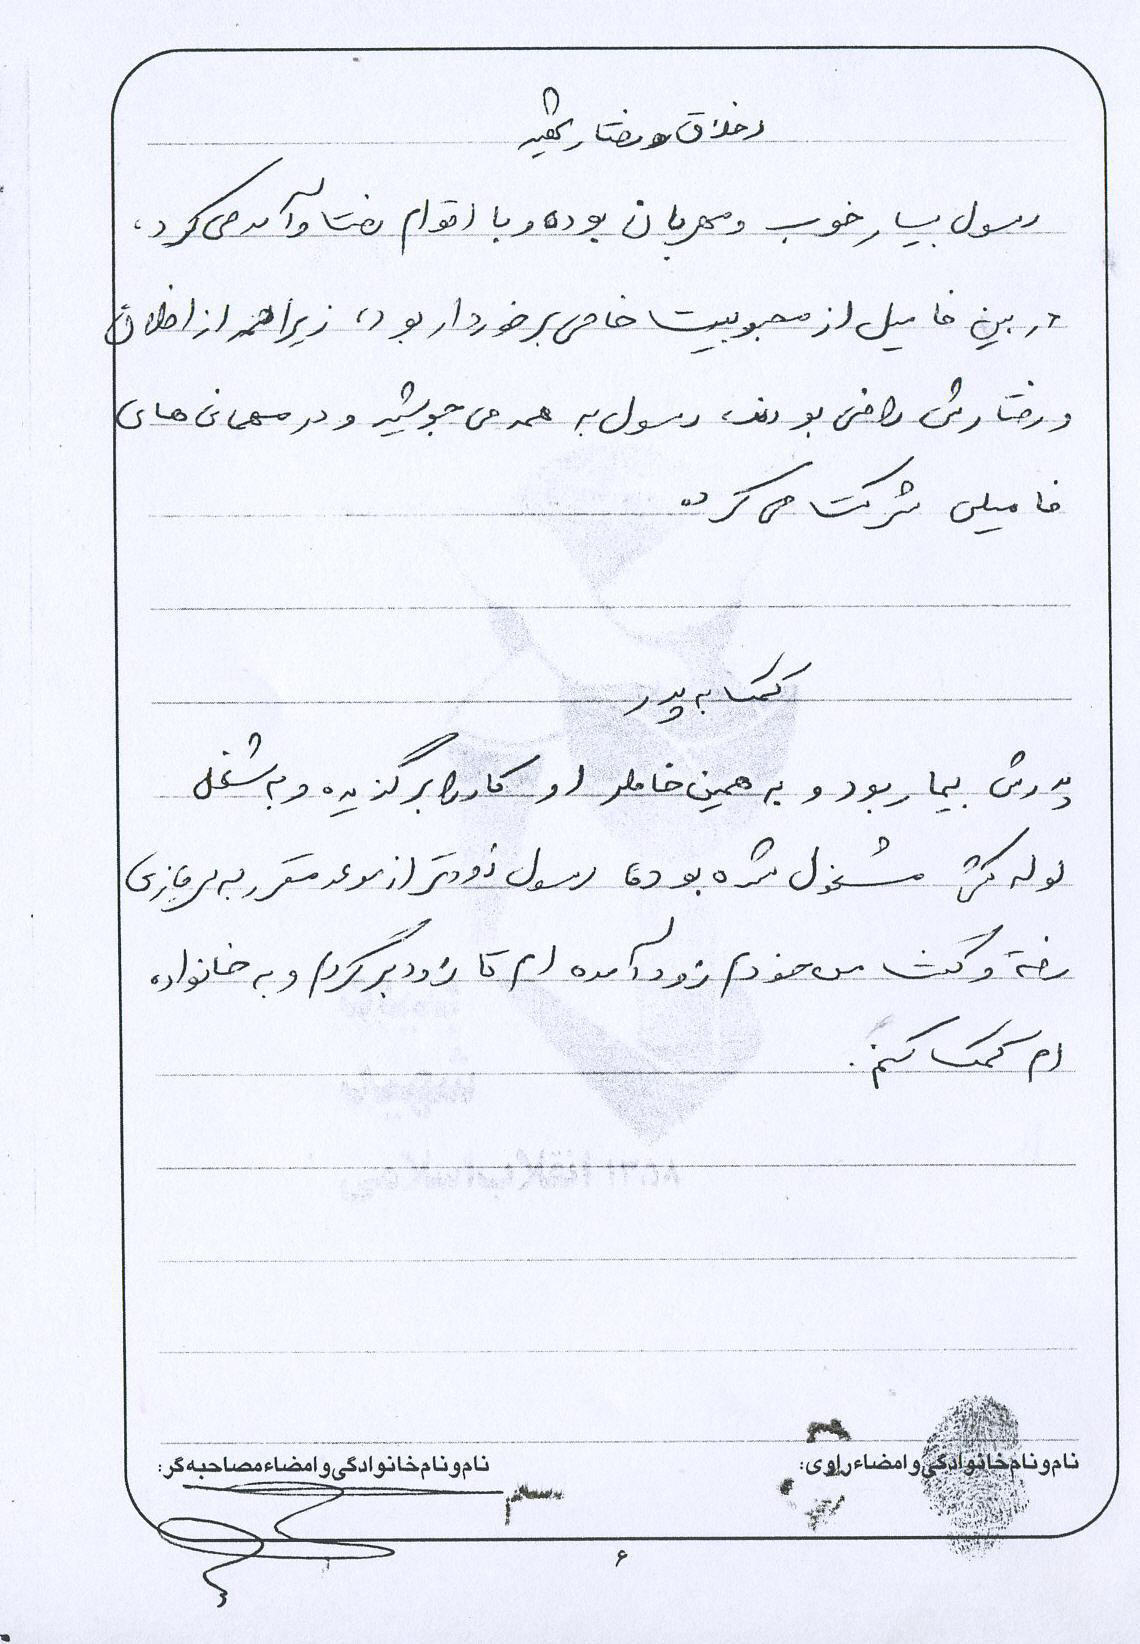 اخلاق و رفتار شهید
رسول بسیار خوب و مهربان بوده و با اقوام رفت و آمد می کرد،
در بین فامیل از محبوبیت خاصی برخوردار بود، زیرا همه از اخلاق
و رفتارش راضی بودند، رسول به همه می جوشید و در مهمانی های
فامیلی شرکت می کرده
کمک به پدر
پدرش بیمار بود و به همین خاطر او کار را برگزیده و به شغل
لوله کشی مشغول شده بود، رسول زودتر از موعد مقرر به سربازی
رفته و گفت من خودم زود آمده ام تا زود برگردم و به خانواده
ام کمک کنم.
نام و نام خانوادگی و امضاء راوی:
نام و نام خانوادگی و امضاء مصاحبه گر:
۶